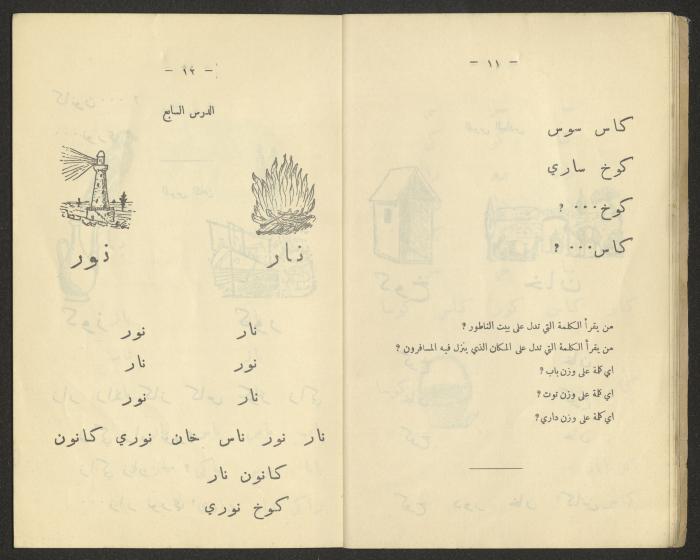 - ١١ -
كاس سوس
كوخ ساري
كوخ... ؟
كاس... ؟
من يقرأ الكلمة التي تدل على بيت الناطور ؟
من يقرأ الكلمة التي تدل على المكان الذي ينزل فيه المسافرون ؟
اي كلمة على وزن باب ؟
اي كلمة على وزن توت ؟
اي كلمة على وزن داري ؟
- ١٢ -
الدرس السابع
نار نور
نار نور
نور نار
نار نور
نار نور ناس خان نوري كانون
كانون نار
كوخ نوري